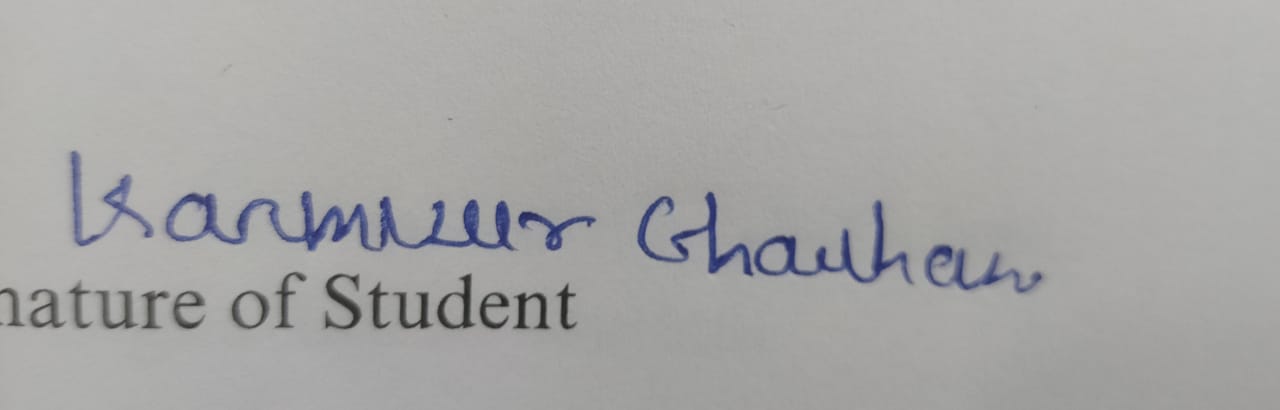 Karmveer Chauhan
nature of Student